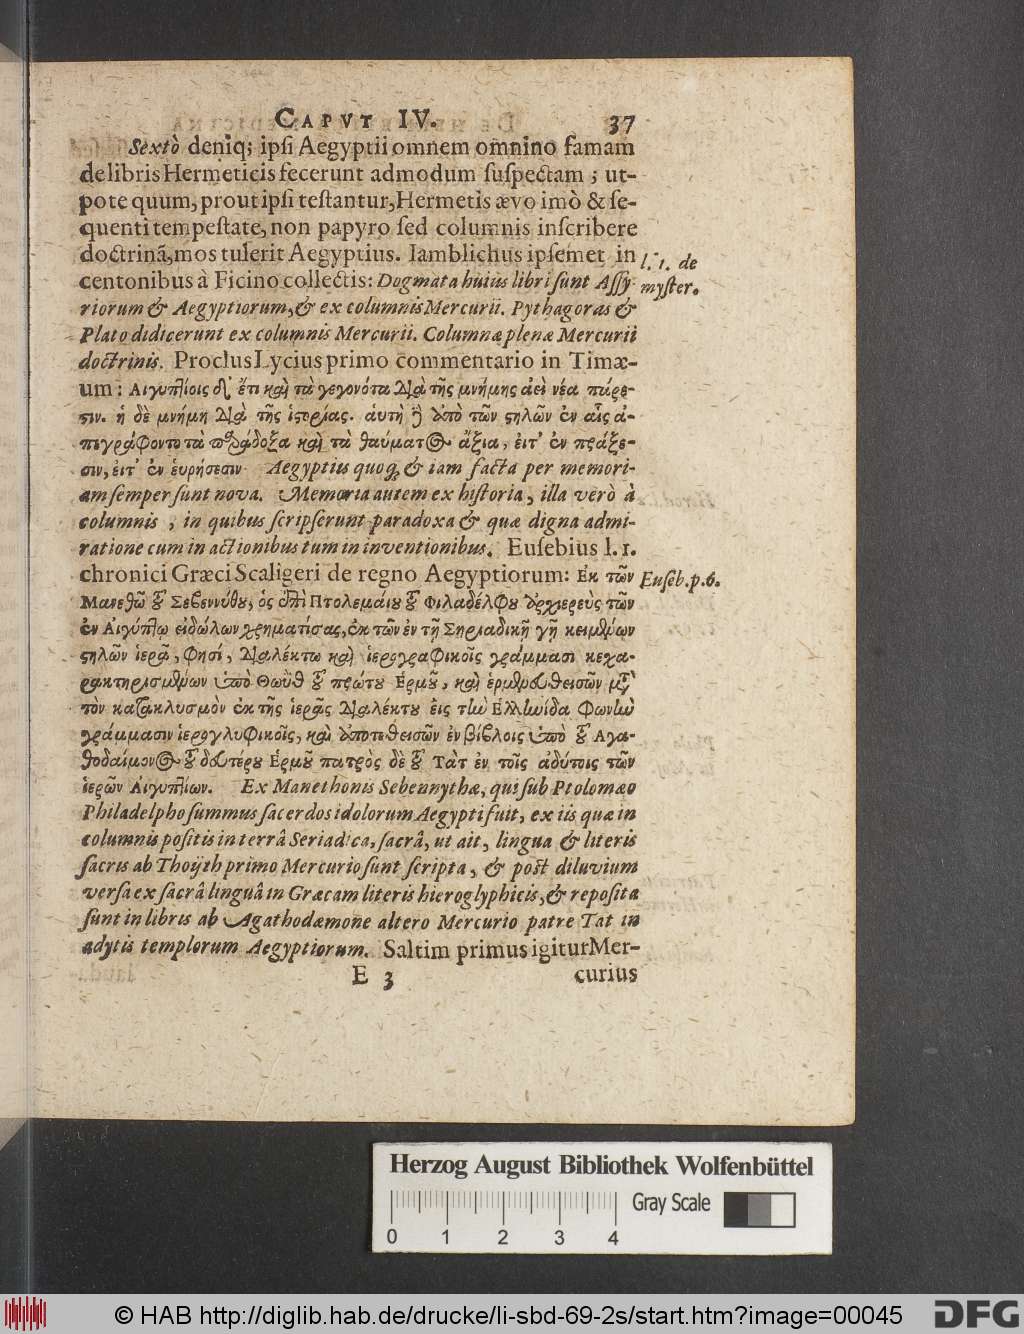 CAPVT IV. 37
Sextò deniq; ipſi Aegyptii omnem omnino famam
de libris Hermeticis fecerunt admodum ſuſpectam ; ut-
pote quum, prout ipſi teſtantur, Hermetis ævo imò & ſe-
quenti tempeſtate, non papyro ſed columnis inſcribere
doctrinã, mos tulerit Aegyptius. Iamblichus ipſemet in
l. 1. de
centonibus à Ficino collectis: Dogmata huius libri ſunt Aſſy-
myſter.
riorum & Aegyptiorum, & ex columnis Mercurii. Pythagoras &
Plato didicerunt ex columnis Mercurii. Columnæ plenæ Mercurii
doctrinis. Proclus Lycius primo commentario in Timæ-
um: Αιγυπτίοις δὲ ἔτι καὶ τὰ γεγονότα διὰ τῆς μνήμης ἀεὶ νέα πάρε-
ςιν. ἡ δὲ μνήμη διὰ τῆς ἱςορίας. ἁυτὴ δὲ ἀπὸ τῶν ςηλῶν ἐν αἷς ἀ-
πεγράφοντο τὰ παράδοξα καὶ τὰ θαύματος ἄξια, ἐιτ' ἐν πράξε-
σιν, ἐιτ' ἐν ἑυρήσεσιν. Aegyptiis quoq, & iam facta per memori-
am ſemper ſunt nova. Memoria autem ex hiſtoria, illa verò à
columnis , in quibus ſcripſerunt paradoxa & quæ digna admi-
ratione cum in actionibus tum in inventionibus. Euſebius l. 1.
chronici Græci Scaligeri de regno Aegyptiorum: Εκ τῶν
Euſeb. p. 6.
Μανεθῶ τοῦ Σεβεννύθου, ὃς ἐπὶ Πτολεμάιου τοῦ Φιλαδέλφου ἀρχιερεὺς τῶν
ἐν Αιγύπτῳ ειδώλων χρηματίσας, ἐκ τῶν ἐν τῇ Σηριαδικῇ γῇ κειμένων
ςηλῶν ἱερᾷ, φησί, διαλέκτω καὶ ἱερογραφικοῖς γράμμασι κεχα-
ρακτηρισμένων ὑπὸ Θωῢθ τοῦ πρώτου Ερμοῦ, καὶ ἑρμηνευθεισῶν μετὰ
τὸν κατακλυσμὸν ἐκ τῆς ἱερᾶς διαλέκτου εἰς τὴν Ελληνίδα φωνὴν
γράμμασιν ἱερογλυφικοῖς, καὶ ἀποτεθεισῶν ἐν βίβλοις ὑπὸ τοῦ Αγα-
θοδαίμονος τοῦ δευτέρου Ερμοῦ πατρὸς δὲ τοῦ Τὰτ ἐν τοῖς ἀδύτοις τῶν
ἱερῶν Αιγυπτίων. Ex Manethonis Sebennythæ, qui ſub Ptolomæo
Philadelpho ſummus ſacerdos idolorum Aegypti fuit, ex iis quæ in
columnis poſitis in terrâ Seriadica, ſacrâ, ut ait, lingua & literis
ſacris ab Thoÿth primo Mercurio ſunt ſcripta, & poſt diluvium
verſa ex ſacrâ linguâ in Græcam literis hieroglyphicis, & repoſita
ſunt in libris ab Agathodæmone altero Mercurio patre Tat in
adytis templorum Aegyptiorum. Saltim primus igitur Mer-
E 3 curius
Herzog August Bibliothek Wolfenbüttel
Gray Scale
0 1 2 3 4
© HAB http://diglib.hab.de/drucke/li-sbd-69-2s/start.htm?image=00045
DFG